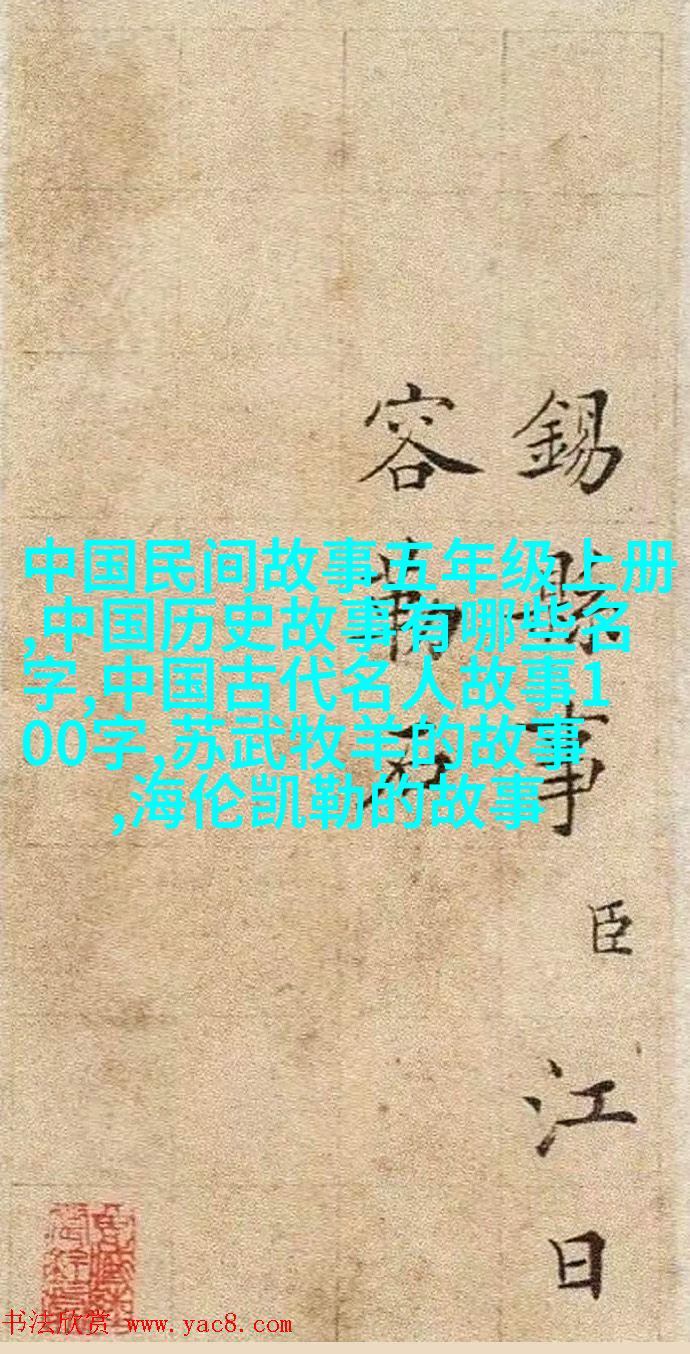 中国民间故事五年级上册
,中国历史故事有哪些名
字,中国古代名人故事1
00字,苏武牧羊的故事
,海伦凯勒的故事
錫縣事臣江日
容
书法欣赏 www.yac8.com